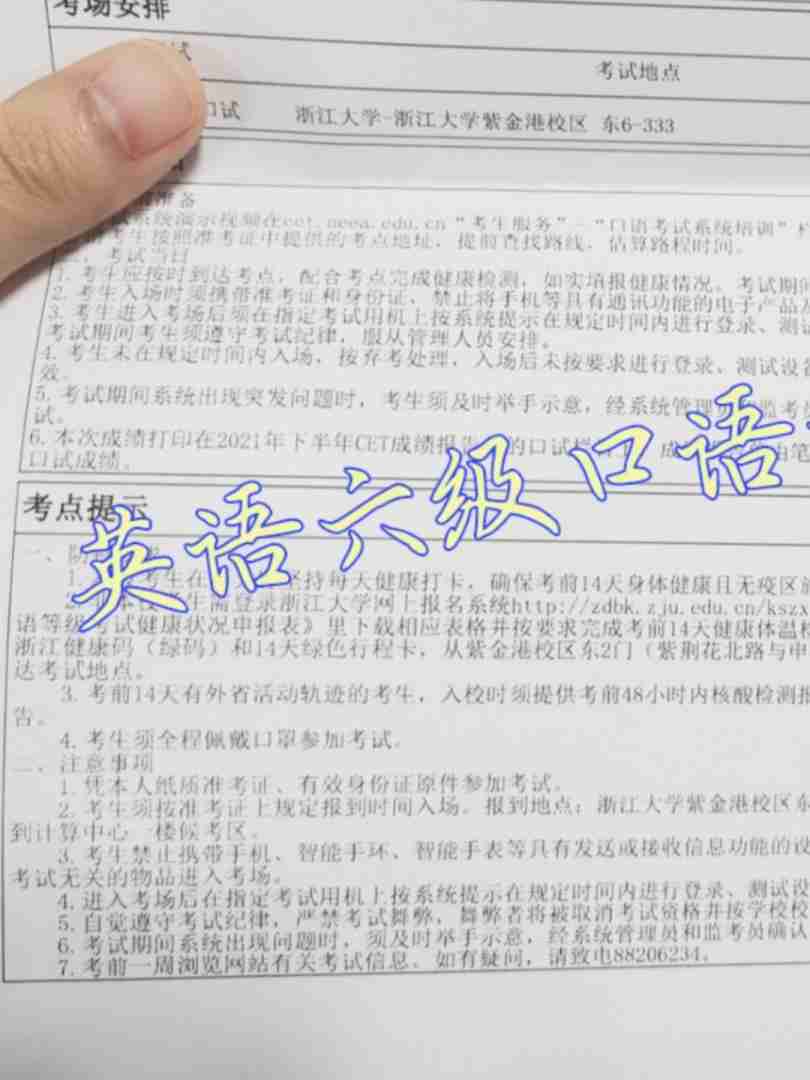 考场安排
试
考试地点
口试 浙江大学-浙江大学紫金港校区 东6-333
准备
试系统演示视频在cet.neea.edu.cn“考生服务”-“口语考试系统培训”栏
考生按照准考证中提供的考点地址，提前查找路线，估算路程时间。
二、考试当日
1. 考生应按时到达考点，配合考点完成健康检测，如实填报健康情况。考试期间
2. 考生入场时须携带准考证和身份证，禁止将手机等具有通讯功能的电子产品
3. 考生进入考场后须在指定考试用机上按系统提示在规定时间内进行登录、测试
考试期间考生须遵守考试纪律，服从管理人员安排。
4. 考生未在规定时间内入场，按弃考处理，入场后未按要求进行登录、测试设备
效。
5. 考试期间系统出现突发问题时，考生须及时举手示意，经系统管理员 监考
试。
6. 本次成绩打印在2021年下半年CET成绩报告 的口试栏目 成 由笔
口试成绩。
考点提示
英语六级口语
一、防
1. 考生在 坚持每天健康打卡，确保考前14天身体健康且无疫区
2. 本校 生需登录浙江大学网上报名系统http://zdbk.zju.edu.cn/kszx
语等级考试健康状况申报表》里下载相应表格并按要求完成考前14天健康体温
浙江健康码（绿码）和14天绿色行程卡，从紫金港校区东2门（紫荆花北路与申
达考试地点。
3. 考前14天有外省活动轨迹的考生，入校时须提供考前48小时内核酸检测报
告。
4. 考生须全程佩戴口罩参加考试。
二、注意事项
1. 凭本人纸质准考证、有效身份证原件参加考试。
2. 考生须按准考证上规定报到时间入场。报到地点：浙江大学紫金港校区东
到计算中心一楼候考区。
3. 考生禁止携带手机、智能手环、智能手表等具有发送或接收信息功能的设
考试无关的物品进入考场。
4. 进入考场后在指定考试用机上按系统提示在规定时间内进行登录、测试设
5. 自觉遵守考试纪律，严禁考试舞弊，舞弊者将被取消考试资格并按学校校
6. 考试期间系统出现问题时，须及时举手示意，经系统管理员和监考员确认
7. 考前一周浏览网站有关考试信息。如有疑问，请致电88206234。